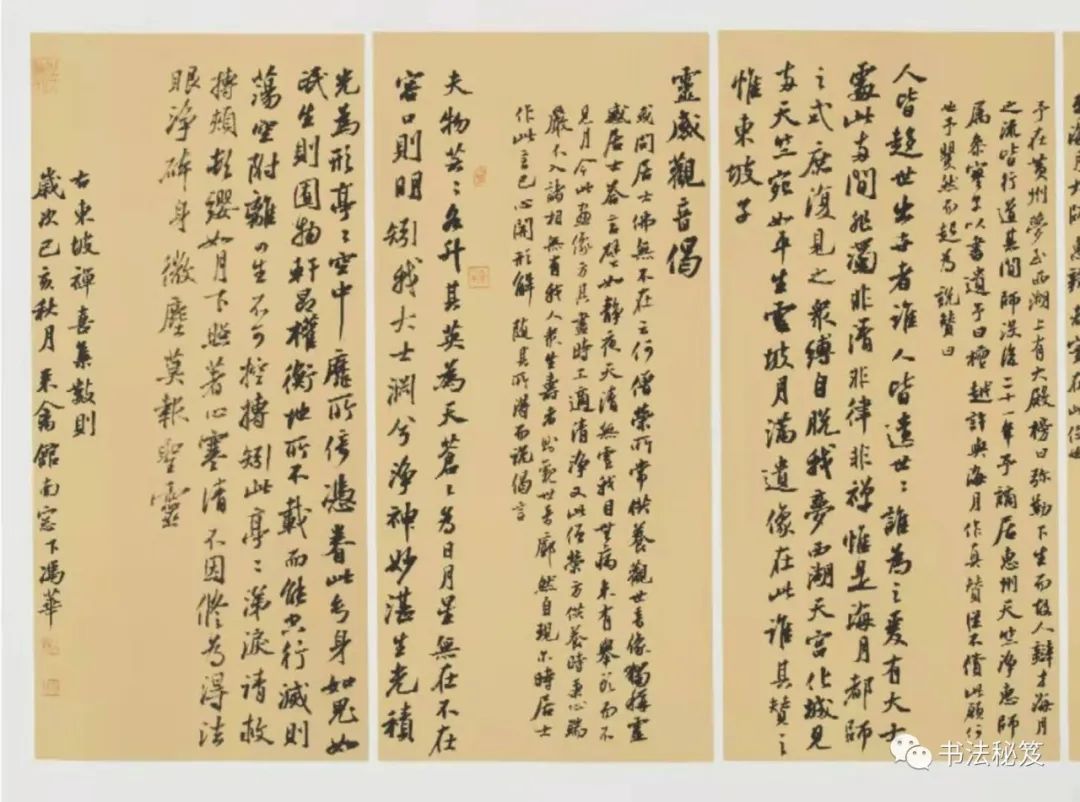 予在黄州夢至西湖上有大殿榜曰弥勒下生而故人辯才海月
之流皆行道其間師没後二十一年予謫居惠州天竺淨惠師
属条寥子以書遺予曰檀越許與海月作真贊不償此願何
也予矍然而起為說贊曰
人皆趋世出世者誰人皆遺世〻誰為之爰有大士
處此兩間非濁非清非律非禅惟是海月都師
之式庶復見之衆縛自脱我夢西湖天宫化城見
兩天竺宛如平生雲披月满遺像在此誰其贊之
惟東坡子
靈感觀音偈
或問居士佛無不在云何僧榮所常供養觀世音像獨稱靈
感居士答言譬如静夜天清無雲我目無病未有舉頭而不
見月今此畫像方其畫時工適清净又此僧榮方供養時秉心端
嚴不入諸相無有我人衆生壽者則觀世音廓然自現尔時居士
作此言已心開形解随其所得而说偈言
夫物芸〻各升其英為天蒼〻為日月星無在不在
容口則明矧我大士淵兮净神妙湛生光積
光為形亭〻空中靡所倚憑眷此幻身如鬼如
氓生則囿物軒昂權衡地所不載而能空行滅則
蕩空附離四生不可控摶矧此亭〻涕淚請救
摶頰頓纓如月下照著心寒清不因修為得法
眼净碎身微塵莫報聖靈
右東坡禪喜集數則
歲次己亥秋月来禽館南窗下馮華
书法秘笈